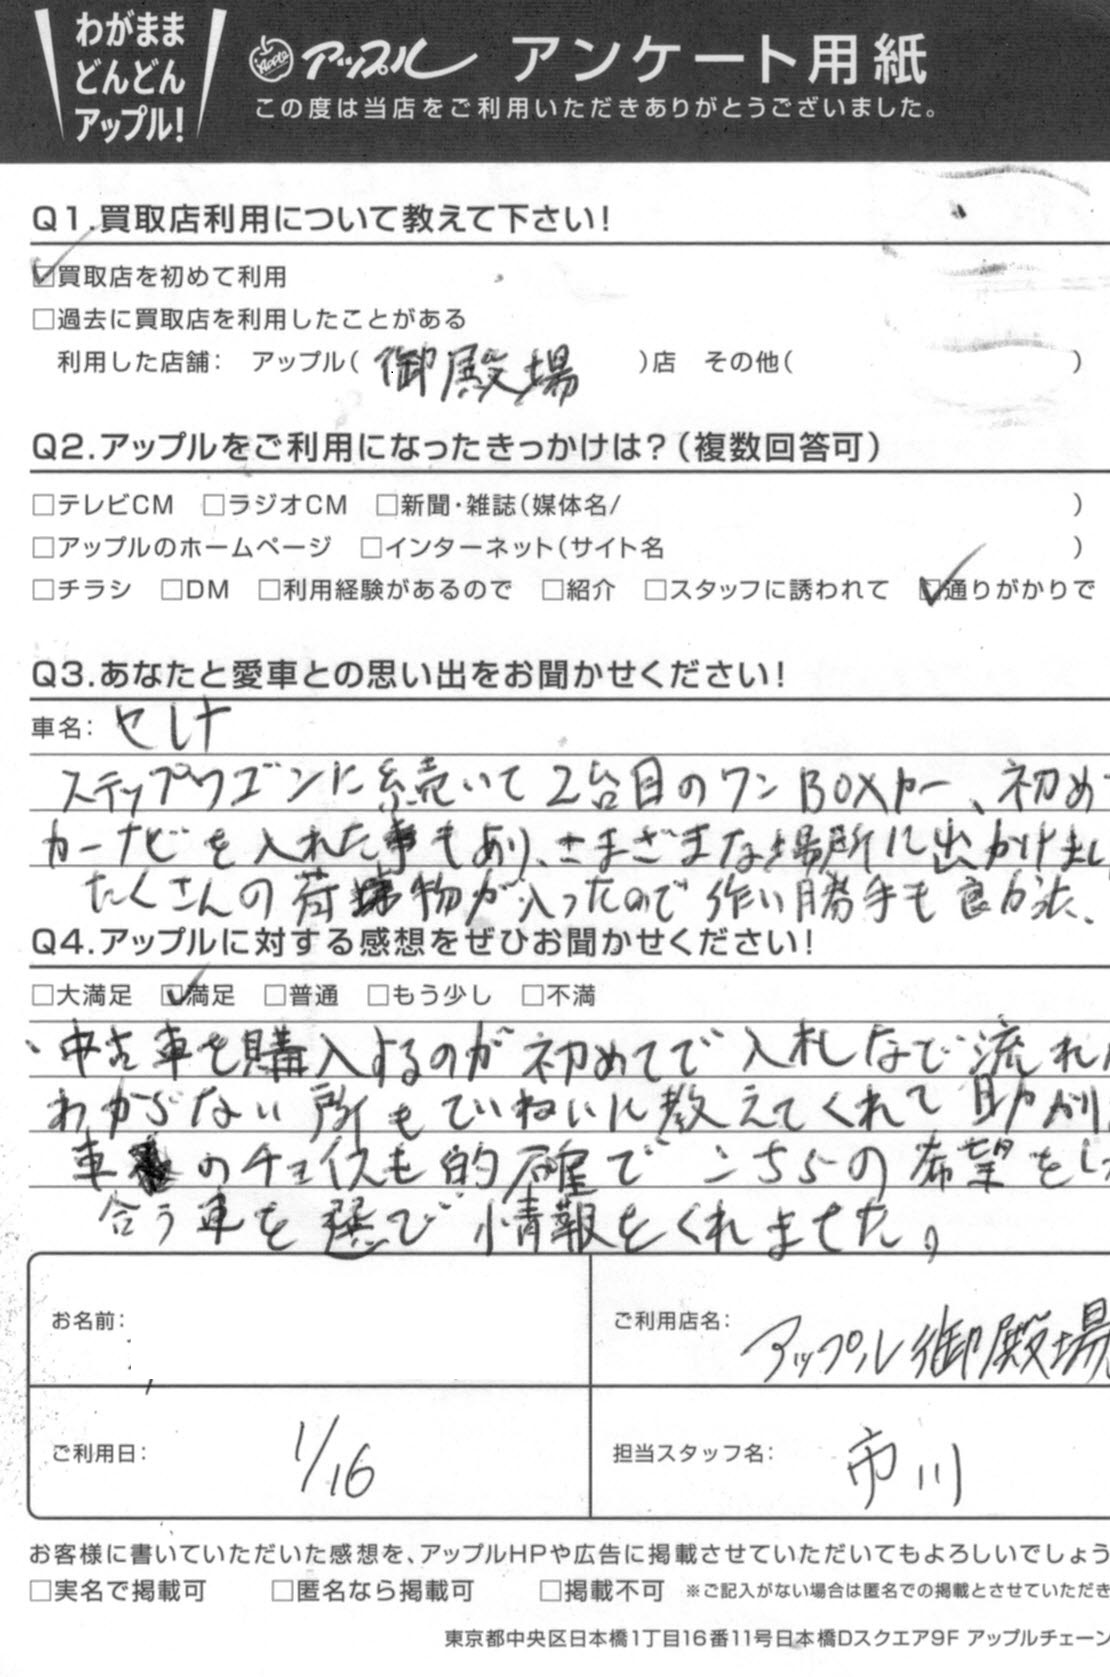 わがまま
どんどん
アップル!
Apple アップル アンケート用紙
この度は当店をご利用いただきありがとうございました。
Q1.買取店利用について教えて下さい!
☑買取店を初めて利用
□過去に買取店を利用したことがある
利用した店舗: アップル( 御殿場 )店 その他( )
Q2.アップルをご利用になったきっかけは?(複数回答可)
□テレビCM □ラジオCM □新聞・雑誌(媒体名/ )
□アップルのホームページ □インターネット(サイト名 )
□チラシ □DM □利用経験があるので □紹介 □スタッフに誘われて ☑通りがかりで
Q3.あなたと愛車との思い出をお聞かせください!
車名: セレナ
ステップワゴンに続いて2台目のワンBOXカー、初め
カーナビを入れた事もあり、さまざまな場所に出かけまし
たくさんの荷物が入ったので作い勝手も良かった、
Q4.アップルに対する感想をぜひお聞かせください!
□大満足 ☑満足 □普通 □もう少し □不満
、中古車を購入するのが初めてで入札など流れ
わからない所もていねいに教えてくれて助かり
車のチョイスも的確でこちらの希望をし
合う車を選び情報をくれました。
お名前:
ご利用店名: アップル御殿場
ご利用日: 1/16
担当スタッフ名: 市川
お客様に書いていただいた感想を、アップルHPや広告に掲載させていただいてもよろしいでしょう
□実名で掲載可 □匿名なら掲載可 □掲載不可 ※ご記入がない場合は匿名での掲載とさせていただき
東京都中央区日本橋1丁目16番11号日本橋Dスクエア9F アップルチェーン